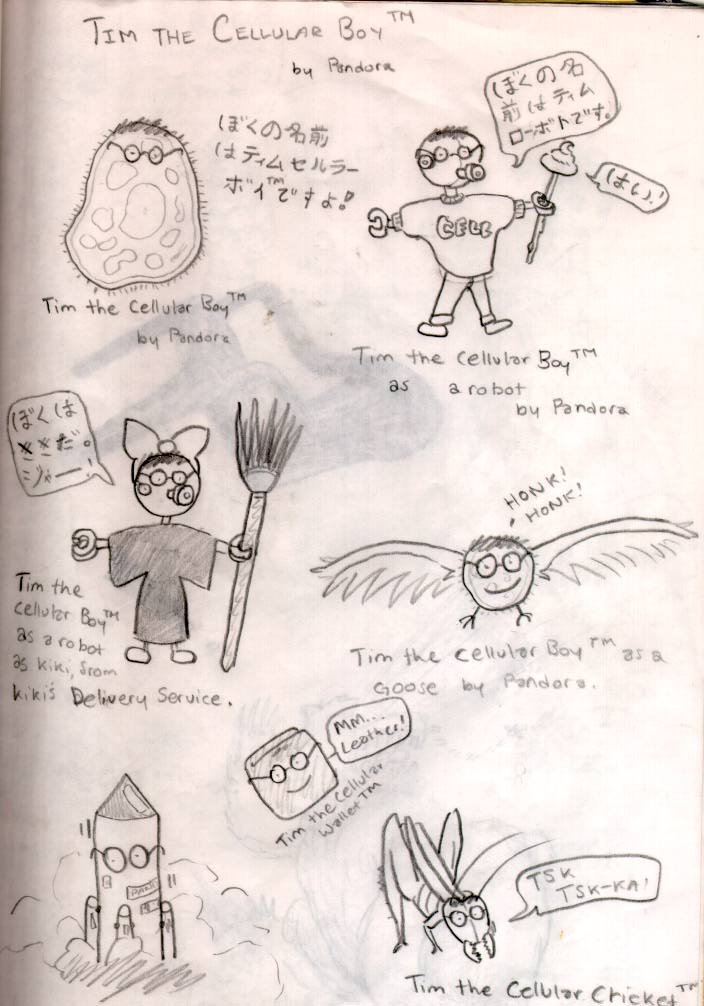 TIM THE CELLULAR BOY™
by Pandora
ぼくの名前
はティムセルラー
ボイ™ですよ!
ぼくの名
前はティム
ローボトです。
はい!
CELL
Tim the Cellular Boy™
by Pandora
Tim the Cellular Boy™
as a robot
by Pandora
ぼくは
キキだ。
ジャー!
HONK!
HONK!
Tim the
Cellular Boy™
as a robot
as kiki, from
kiki's Delivery Service.
Tim the Cellular Boy™ as a
Goose by Pandora.
MM...
Leather!
Tim the Cellular
Wallet™
TSK
TSK-KA!
Tim the Cellular Cricket™